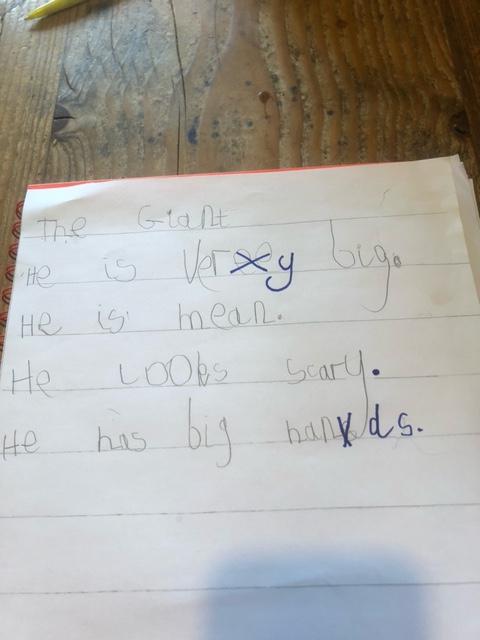 The Giant
He is very big.
He is mean.
He Looks scary.
He has big hands.